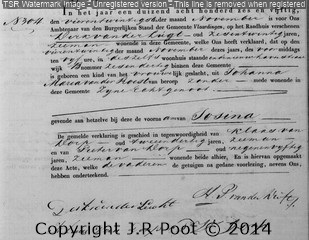 TSR Watermark Image - Unregistered version - This line is removed when registered
In het jaar duizend acht honderd zes en vijftig,
No 304 den vier en twintigsten der maand November is voor Ons
Ambtenaar van den Burgerlijken Stand der Gemeente Vlaardingen, op het Raadhuis verschenen
Dirk van der Lugt oud zes en twintig jaren,
zeeman wonende in deze Gemeente, welke Ons heeft verklaard, dat op den
der maand November dezes jaars, des voor middags
ten ure, in het huis staande
wijk 4 nommer binnen deze Gemeente, is
geboren een kind van het vrouwelijk geslacht, uit Johanna
Maria van der beroep zonder mede wonende in
deze Gemeente Zijne Echtgenoot
gevende aan hetzelve bij deze de voornaam van Josina
De gemelde verklaring is geschied in tegenwoordigheid van Klaas van
Dorp oud twee en dertig jaren, zeeman
en Pieter van Dorp oud negen en vijftig
jaren, zeeman wonende beide alhier, En is hiervan opgemaakt
deze Acte, welke de vader en de getuigen na gedane voorlezing, nevens Ons,
hebben onderteekend.
Copyright J.R Poot © 2014